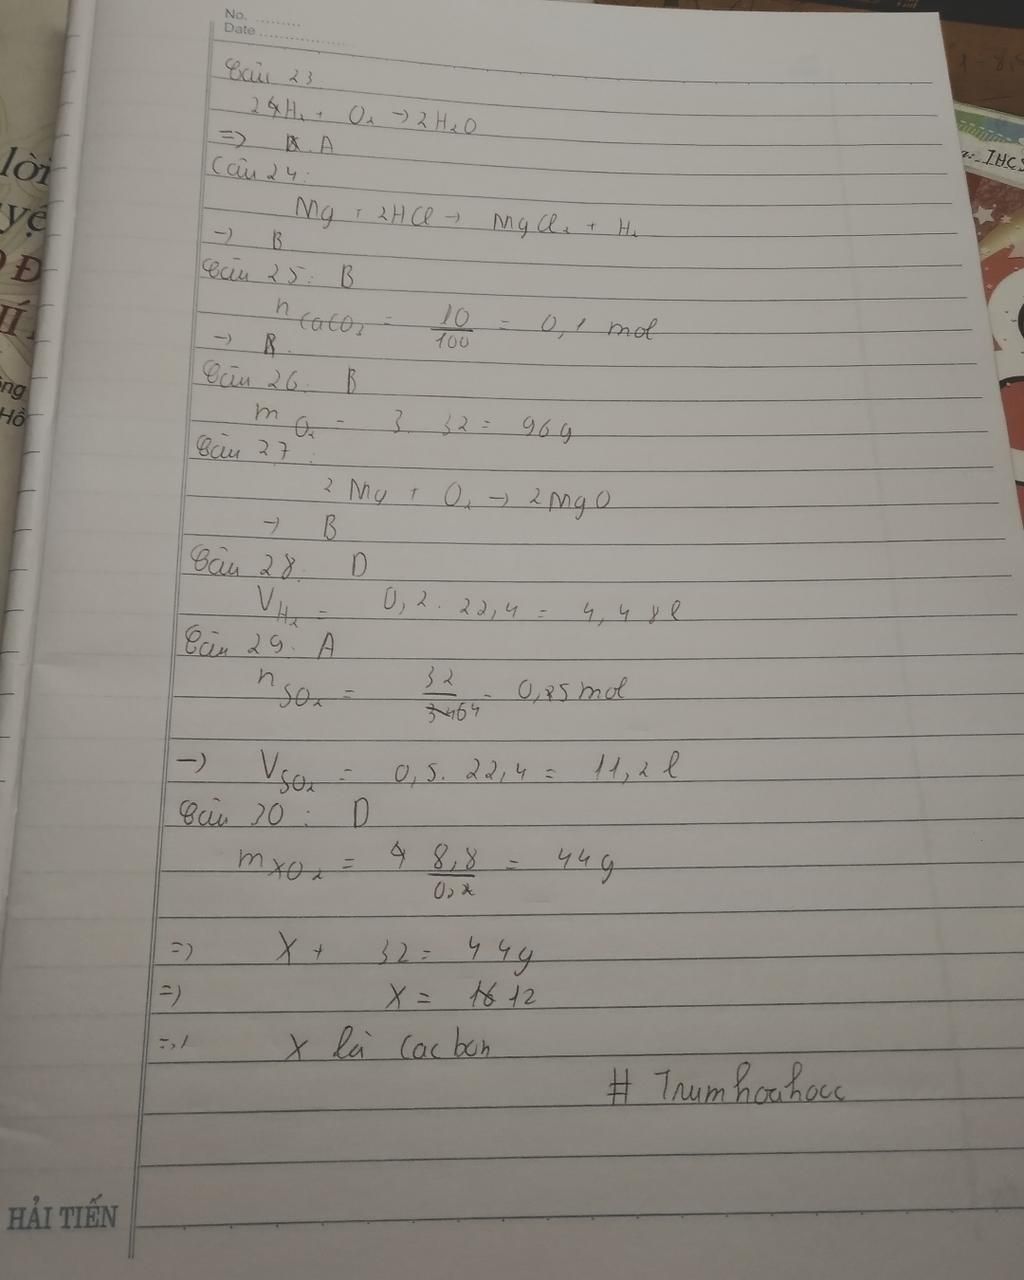 No. ..........
Date .....................
Câu 23
2H₂ + O₂ → 2H₂O
=> A
Câu 24:
Mg + 2HCl → MgCl₂ + H₂
→ B
Câu 25: B
n CaCO₃ = 10/100 = 0,1 mol
→ B.
Câu 26. B
m O₂ = 3. 32 = 96g
Câu 27:
2 Mg + O₂ → 2MgO
→ B
Câu 28. D
V H₂ = 0,2. 22,4 = 4,48l
Câu 29. A
n SO₂ = 32/64 = 0,5 mol
→ V SO₂ = 0,5. 22,4 = 11,2 l
Câu 30: D
m XO₂ = 8,8/0,2 = 44g
=> X + 32 = 44g
=> X = 12
=> X là cacbon
# Trumhoahocc
HẢI TIẾN
lời
Đ
ông
Hồ
THCS